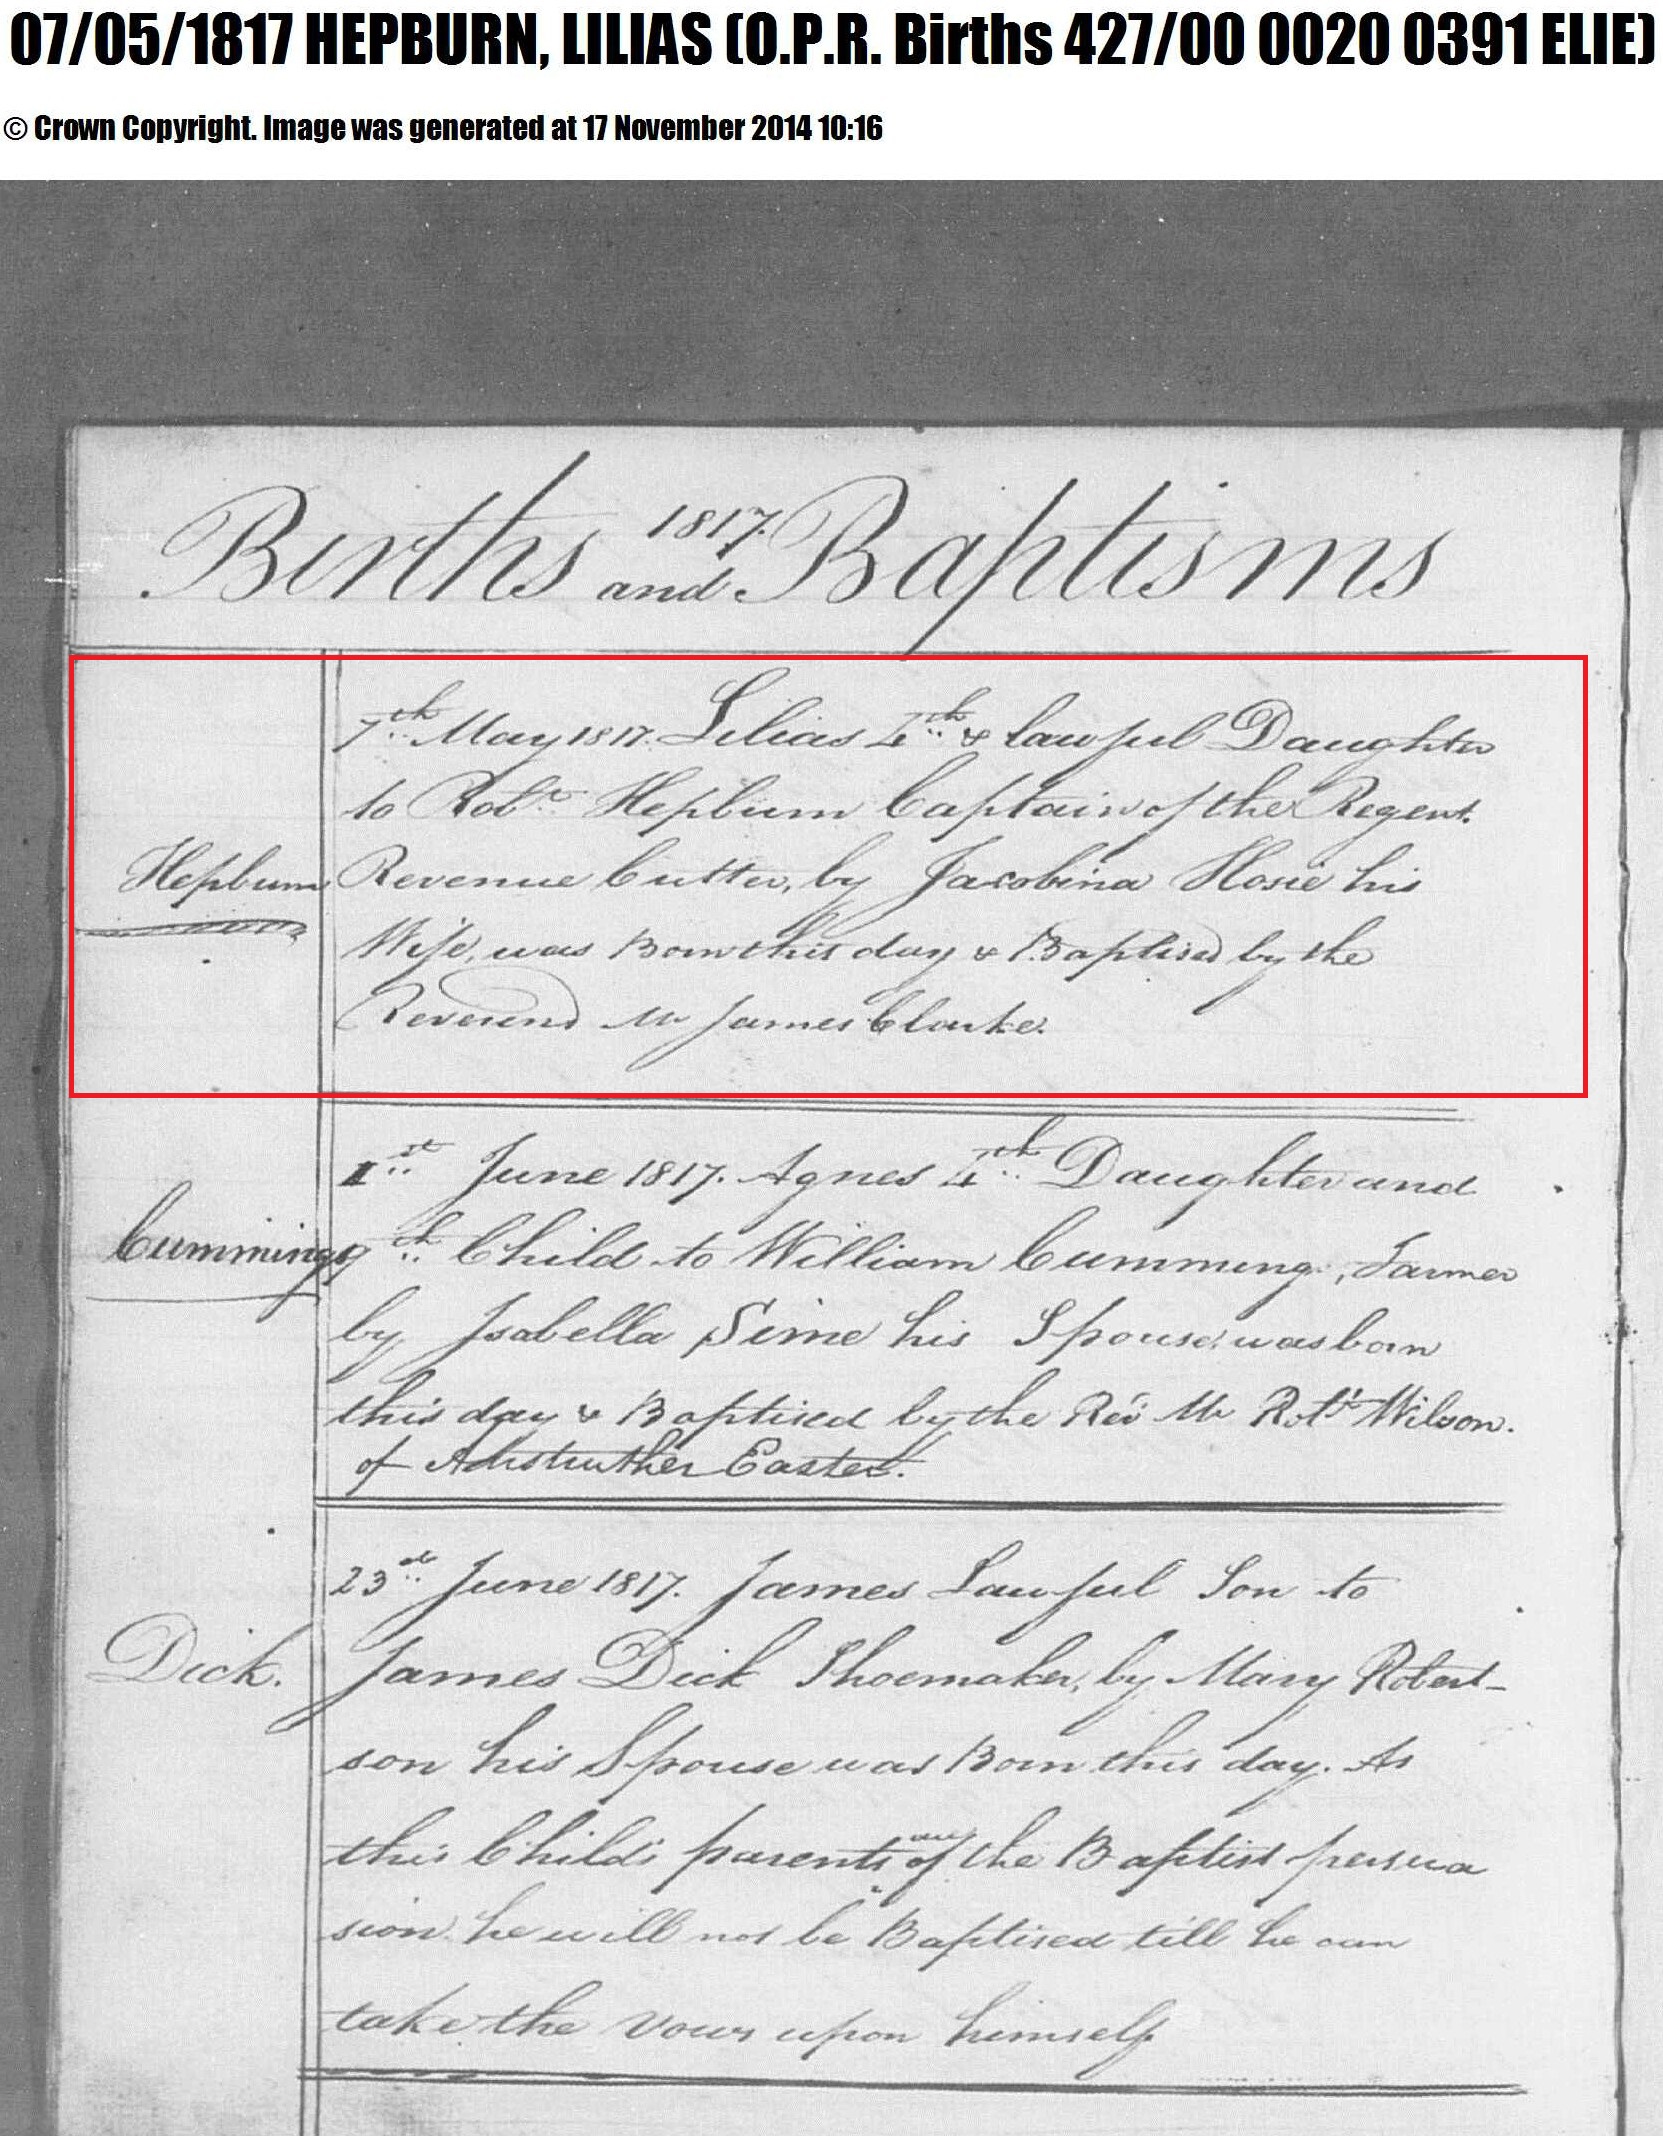 07/05/1817 HEPBURN, LILIAS (O.P.R. Births 427/00 0020 0391 ELIE)
© Crown Copyright. Image was generated at 17 November 2014 10:16
1817.
Births and Baptisms
7th May 1817. Lilias 4th & lawful Daughter
to Robt. Hepburn Captain of the Regent
Hepburn Revenue Cutter, by Jacobina Hosie his
Wife, was Born this day & Baptised by the
Reverend Mr James Clarke.
1st June 1817. Agnes 4th Daughter and
Cumming 9th Child to William Cumming, Farmer
by Isabella Sime his Spouse, was born
this day & Baptised by the Revd Mr Robt Wilson.
of Anstruther Easter.
23d June 1817. James Lawful Son to
Dick. James Dick Shoemaker, by Mary Robert-
son his Spouse was Born this day. As
this Child's parents are of the Baptist persua
sion he will not be Baptised till he can
take the vows upon himself